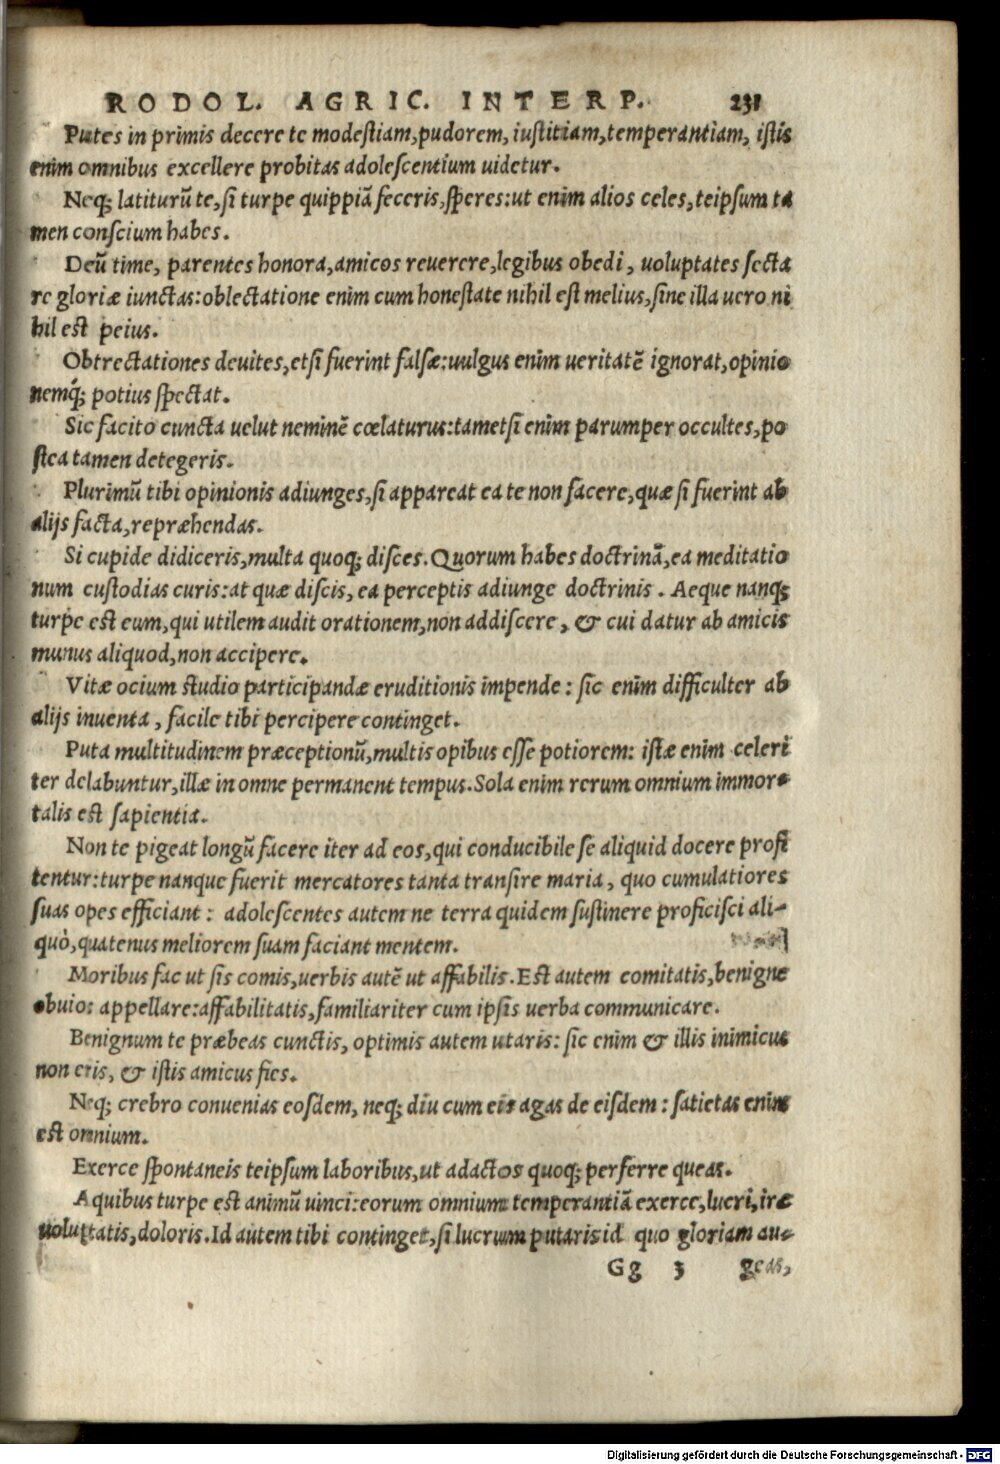 RODOL. AGRIC. INTERP. 231
Putes in primis decere te modestiam, pudorem, iustitiam, temperantiam, istis
enim omnibus excellere probitas adolescentium uidetur.
Neq; latiturũ te, si turpe quippiã feceris, speres: ut enim alios celes, teipsum ta
men conscium habes.
Deũ time, parentes honora, amicos reuerere, legibus obedi, uoluptates secta
re gloriæ iunctas: oblectatione enim cum honestate nihil est melius, sine illa uero ni
hil est peius.
Obtrectationes deuites, etsi fuerint falsæ: uulgus enim ueritatẽ ignorat, opinio
nemq́; potius spectat.
Sic facito cuncta uelut neminẽ cœlaturus: tametsi enim parumper occultes, po
stea tamen detegeris.
Plurimũ tibi opinionis adiunges, si appareat ea te non facere, quæ si fuerint ab
alijs facta, repræhendas.
Si cupide didiceris, multa quoq; disces. Quorum habes doctrinã, ea meditatio
num custodias curis: at quæ discis, ea perceptis adiunge doctrinis. Aeque nanq;
turpe est eum, qui utilem audit orationem, non addiscere, & cui datur ab amicis
munus aliquod, non accipere.
Vitæ ocium studio participandæ eruditionis impende: sic enim difficulter ab
alijs inuenta, facile tibi percipere continget.
Puta multitudinem præceptionũ, multis opibus esse potiorem: istæ enim celeri
ter delabuntur, illæ in omne permanent tempus. Sola enim rerum omnium immor-
talis est sapientia.
Non te pigeat longũ facere iter ad eos, qui conducibile se aliquid docere profi
tentur: turpe nanque fuerit mercatores tanta transire maria, quo cumulatiores
suas opes efficiant: adolescentes autem ne terra quidem sustinere proficisci ali-
quò, quatenus meliorem suam faciant mentem.
Moribus fac ut sis comis, uerbis autẽ ut affabilis. Est autem comitatis, benigne
obuio: appellare: affabilitatis, familiariter cum ipsis uerba communicare.
Benignum te præbeas cunctis, optimis autem utaris: sic enim & illis inimicus
non eris, & istis amicus fies.
Neq; crebro conuenias eosdem, neq; diu cum eis agas de eisdem: satietas enim
est omnium.
Exerce spontaneis teipsum laboribus, ut adactos quoq; perferre queas.
A quibus turpe est animũ uinci: eorum omnium temperantiã exerce, lucri, iræ
uoluptatis, doloris. Id autem tibi continget, si lucrum putaris id quo gloriam au-
Gg 3 geas,
Digitalisierung gefördert durch die Deutsche Forschungsgemeinschaft - DFG